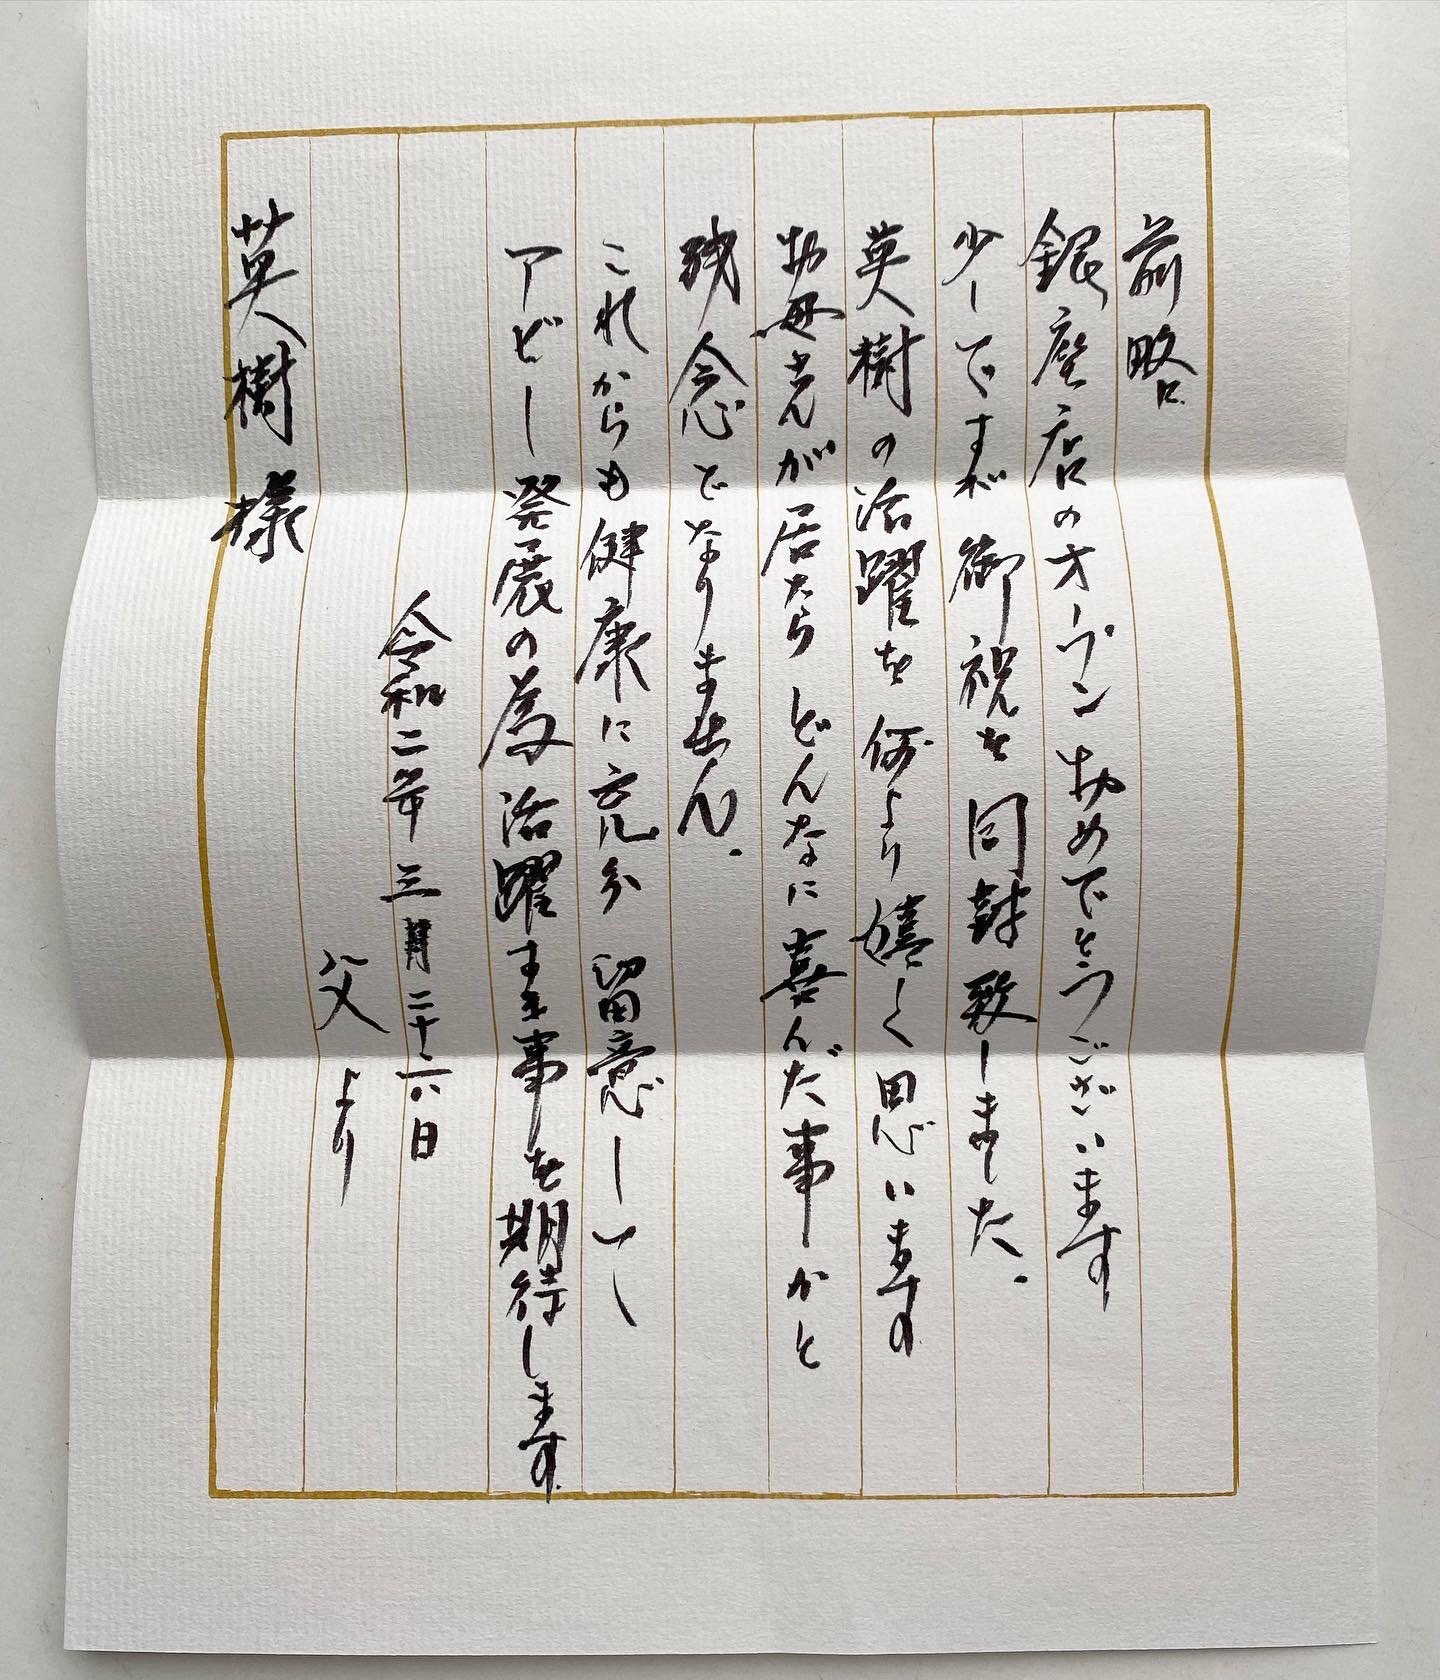 前略
銀座店のオープンおめでとうございます
少しですが御祝を同封致しました.
英樹の活躍を何より嬉しく思います
お母さんが居たらどんなに喜んだ事かと
残念でなりません.
これからも健康に充分留意して
アピール発展の為活躍する事を期待します.
令和二年三月二十六日
父より
英樹様